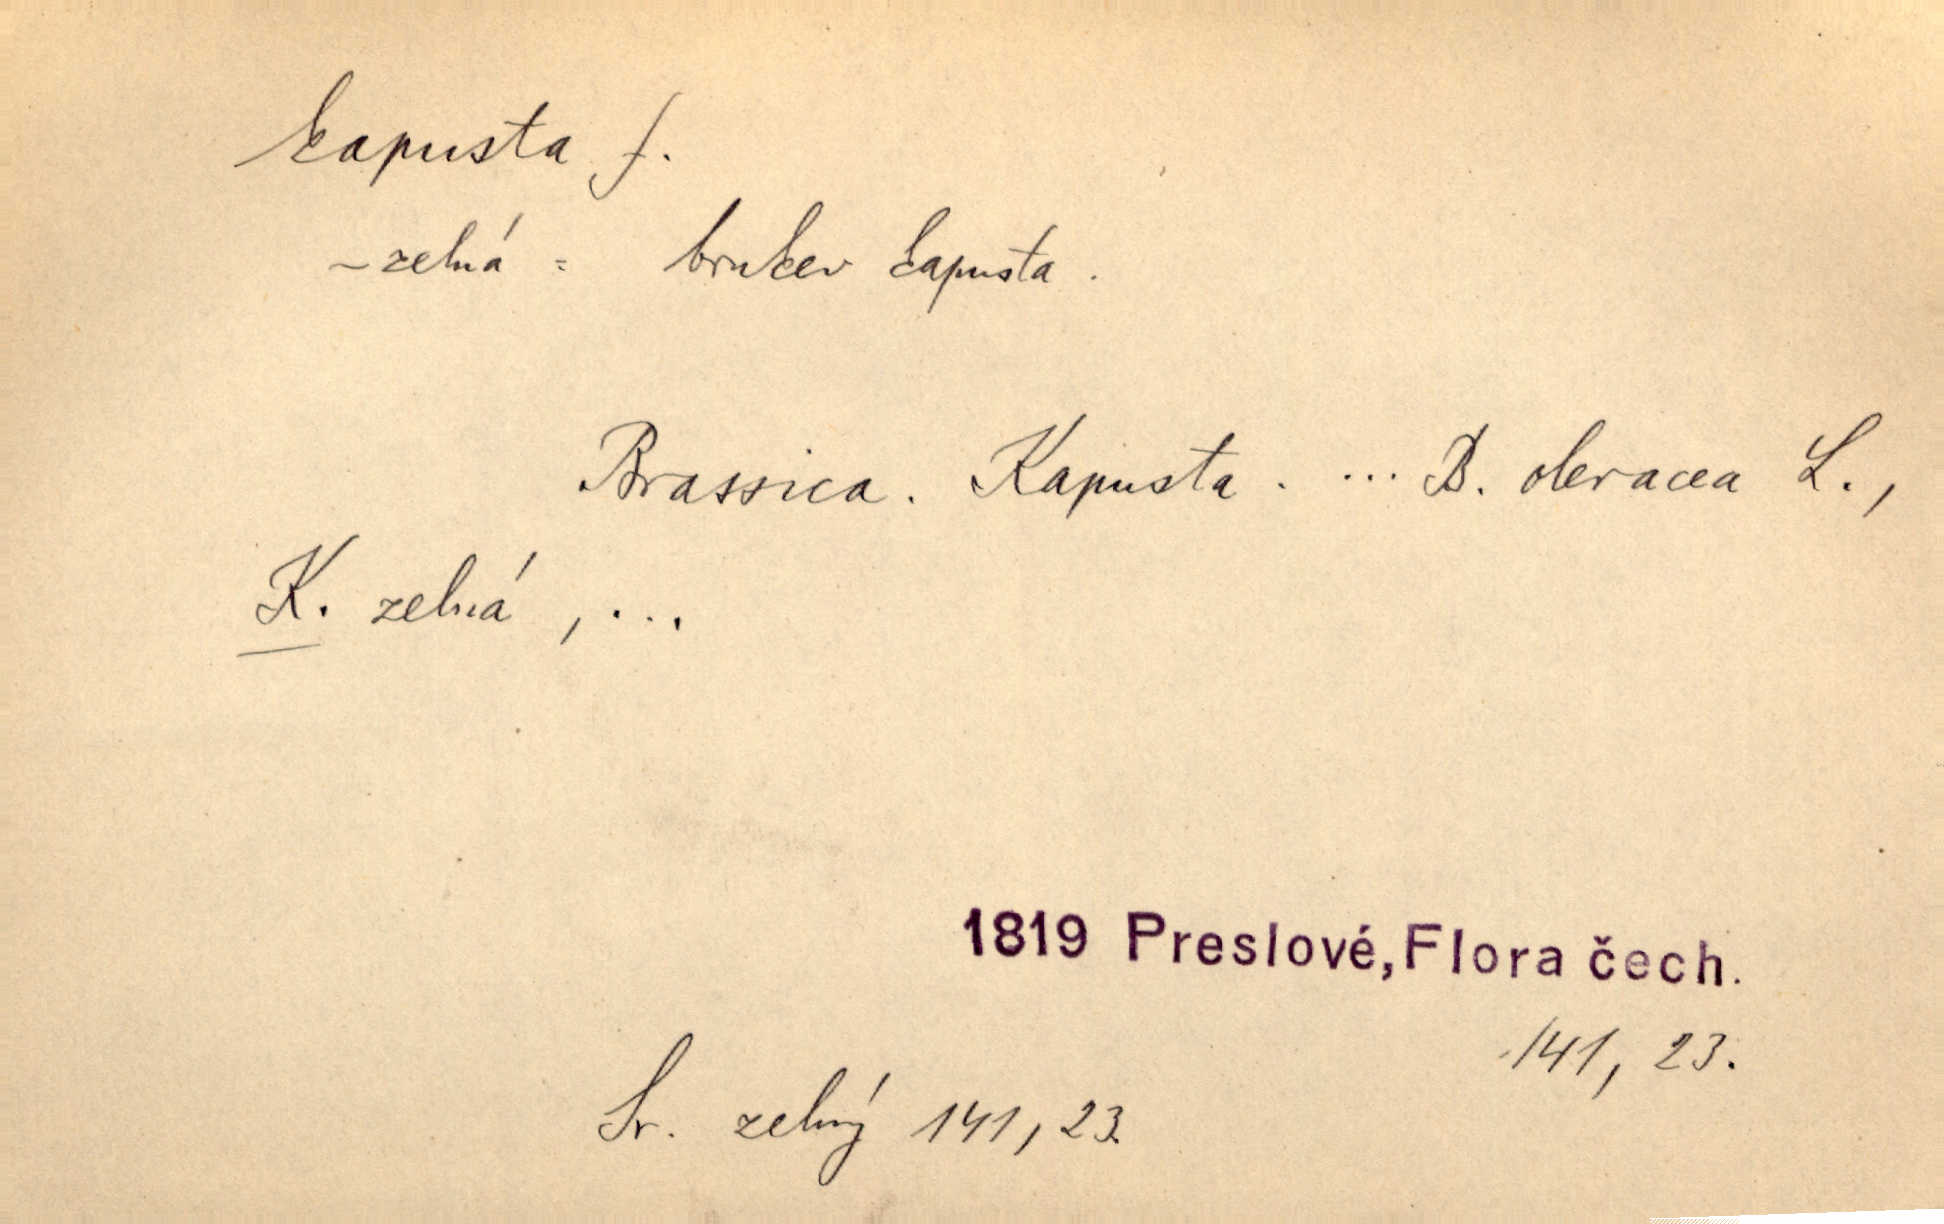 kapusta f.
~ zelná = brukev kapusta.
Brassica. Kapusta. ... B. oleracea L.,
K. zelná, ...
1819 Preslové, Flora čech.
141, 23.
Sr. zelný 141, 23.